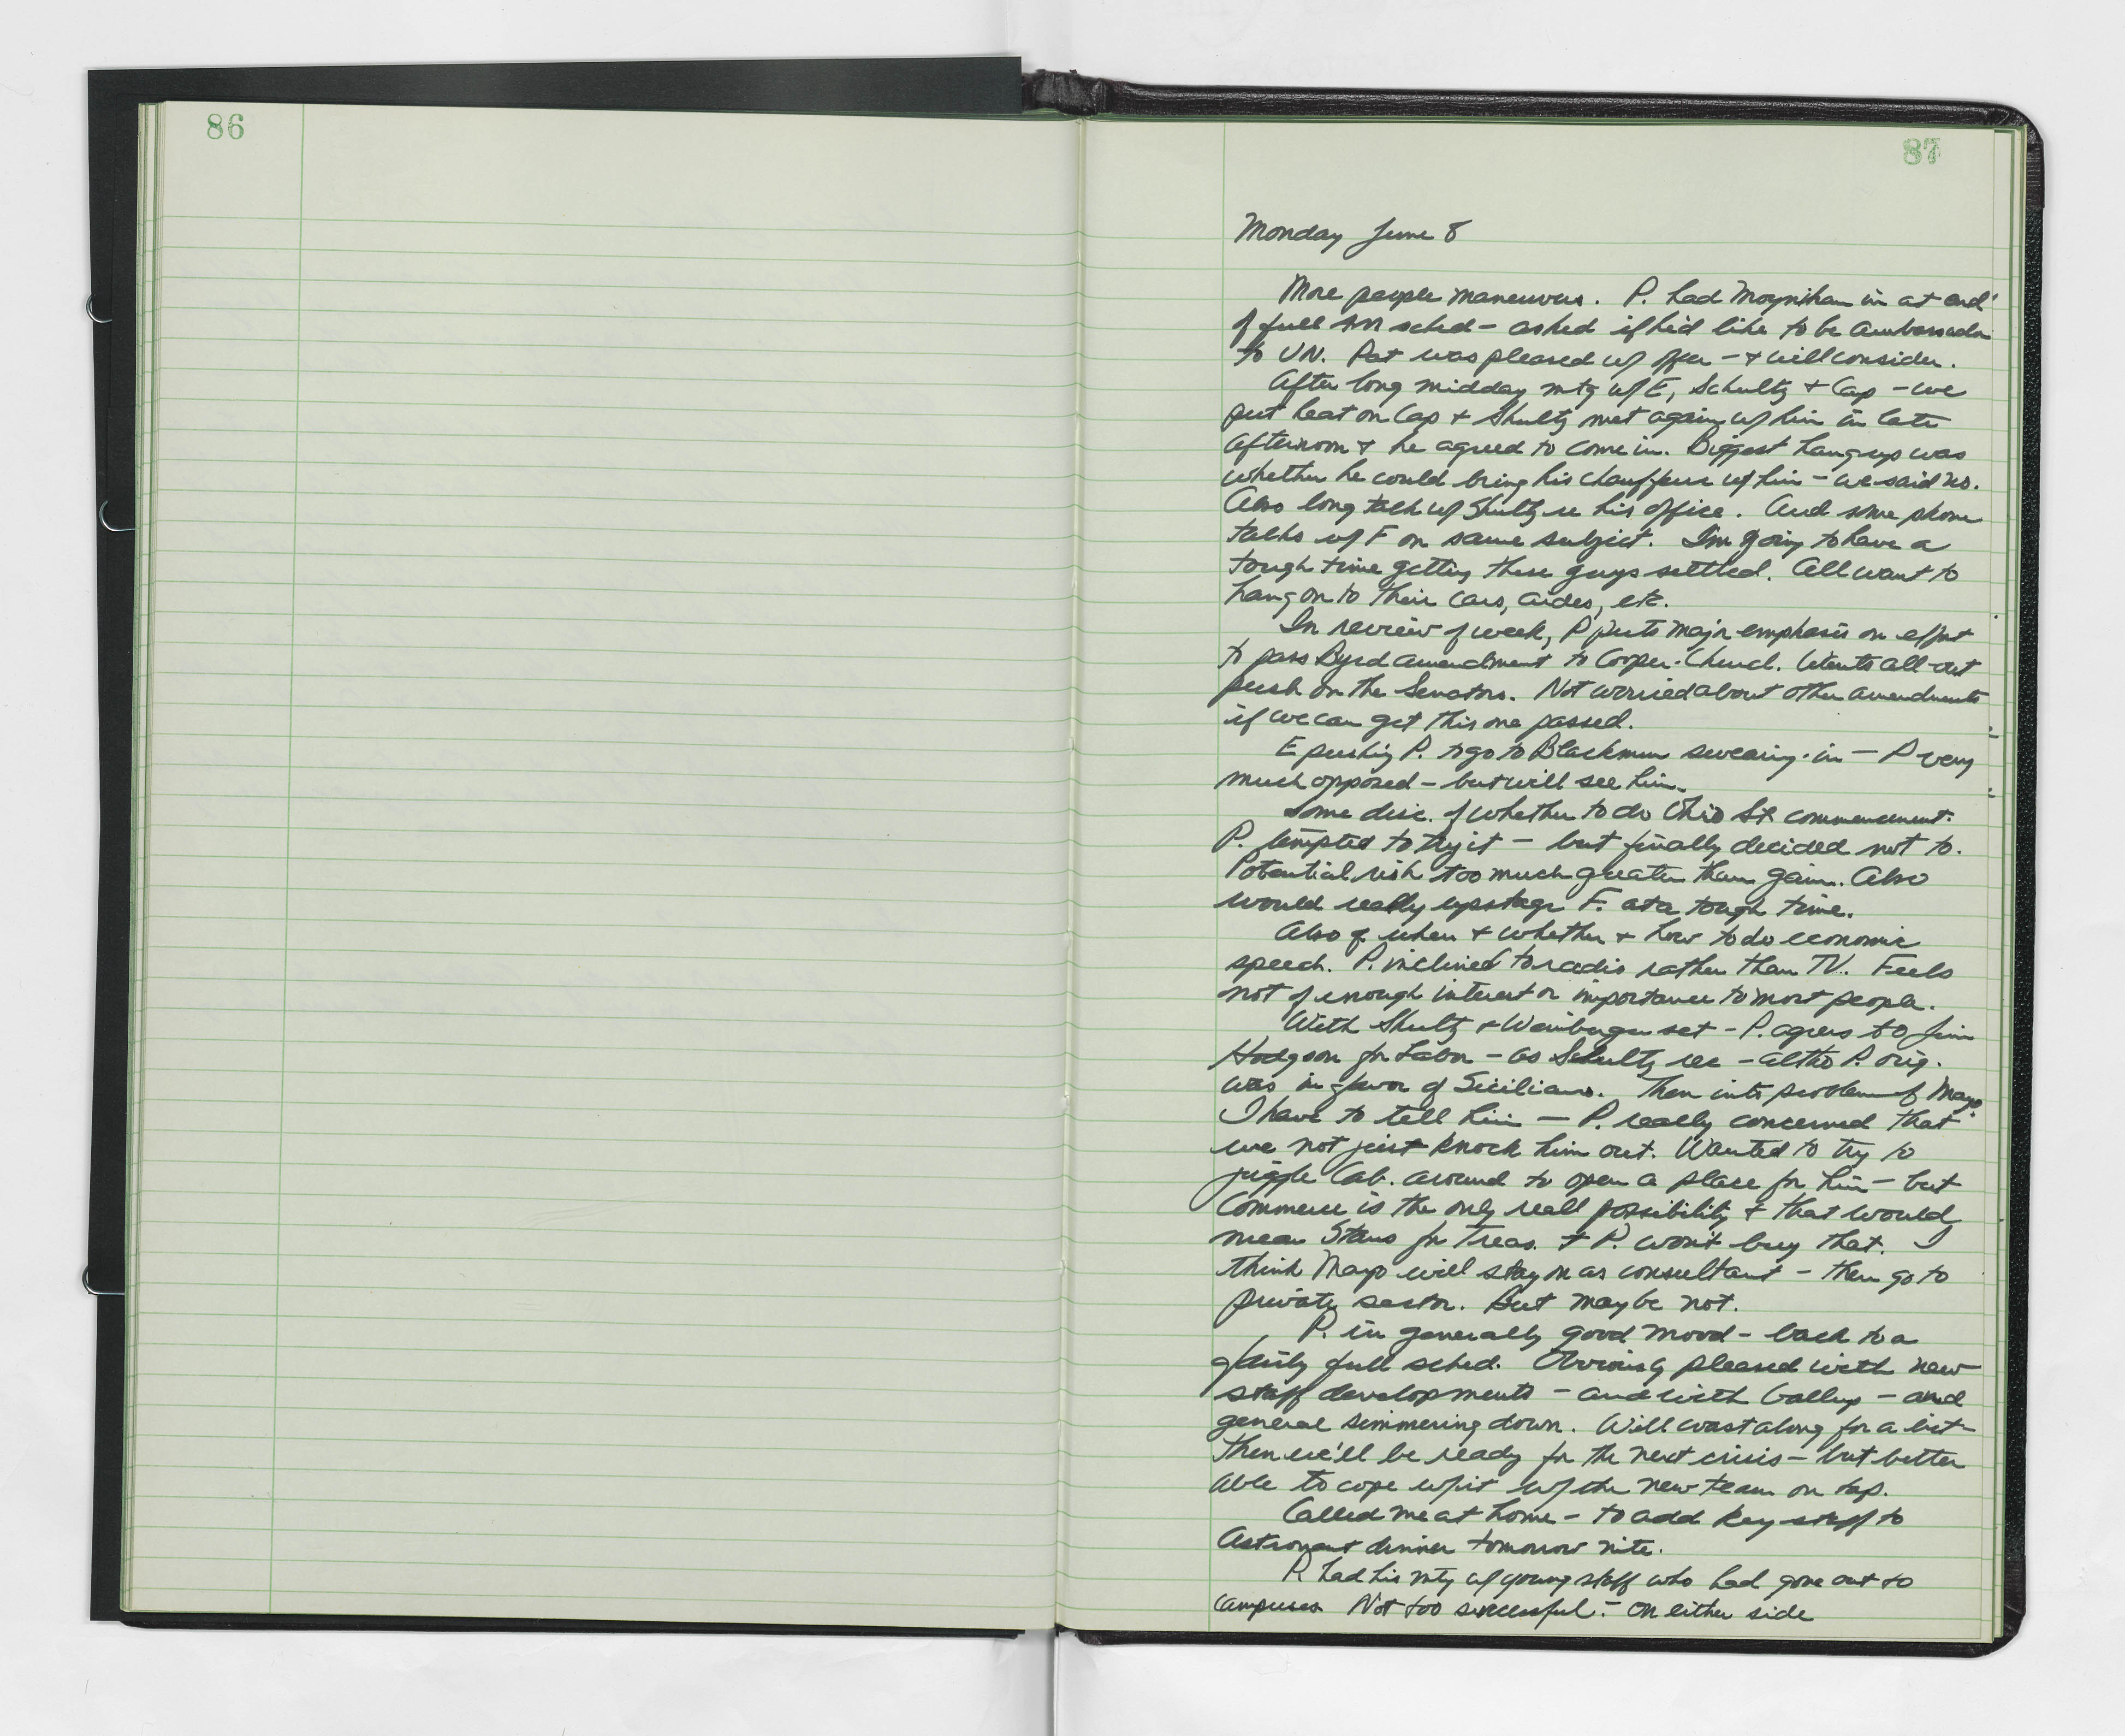 86
87
Monday June 8
More people maneuvers. P. had Moynihan in at end
of full AM sched - asked if he'd like to be Ambassador
to UN. Pat was pleased w/ offer - + will consider.
After long midday mtg w/ E, Schultz + Cap - we
put heat on Cap + Shultz met again w/ him in late
afternoon + he agreed to come in. Biggest hangup was
whether he could bring his chauffeur w/ him - we said no.
Also long talk w/ Shultz re his office. And some phone
talks w/ F on same subject. I'm going to have a
tough time getting these guys settled. All want to
hang on to their cars, aides, etc.
In review of week, P puts major emphasis on effort
to pass Byrd amendment to Cooper-Church. Wants all-out
push on the Senators. Not worried about other amendments
if we can get this one passed.
E pushing P. to go to Blackmun swearing-in - P very
much opposed - but will see him.
Some disc. of whether to do Ohio St. commencement.
P. tempted to try it - but finally decided not to.
Potential risk too much greater than gain. Also
would really upstage F. at a tough time.
Also of when + whether + how to do economic
speech. P. inclined to radio rather than TV. Feels
not of enough interest or importance to most people.
With Shultz + Weinberger set - P. agrees to Jim
Hodgson for Labor - as Schultz rec - altho P. orig.
was in favor of Siciliano. Then into problem of Mayo.
I have to tell him - P. really concerned that
we not just knock him out. Wanted to try to
juggle Cab. around to open a place for him - but
Commerce is the only real possibility + that would
mean Stans for Treas. + P. won't buy that. I
think Mayo will stay on as consultant - then go to
private sector. But maybe not.
P. in generally good mood - back to a
fairly full sched. Obviously pleased with new
staff developments - and with Gallup - and
general simmering down. Will coast along for a bit -
then we'll be ready for the next crisis - but better
able to cope w/ it w/ the new team on tap.
Called me at home - to add key staff to
Astronaut dinner tomorrow nite.
P. had his mtg w/ young staff who had gone out to
campuses Not too successful - on either side